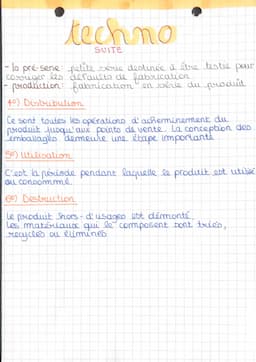 techno
SUITE
- la pré-serie: petite série destinée à être testée pour
corriger les défauts de fabrication
- production: fabrication en série du produit
4°) Distribution
Ce sont toutes les opérations d'acheminement du
produit jusqu'aux points de vente. La conception des
embalages demeure une étape importante
5°) Utilisation
C'est la période pendant laquelle le produit est utilisé
ou consommé.
6°) Destruction
Le produit hors-d'usages est démonté
Les matériaux qui le composent sont triés,
recyclés ou éliminés